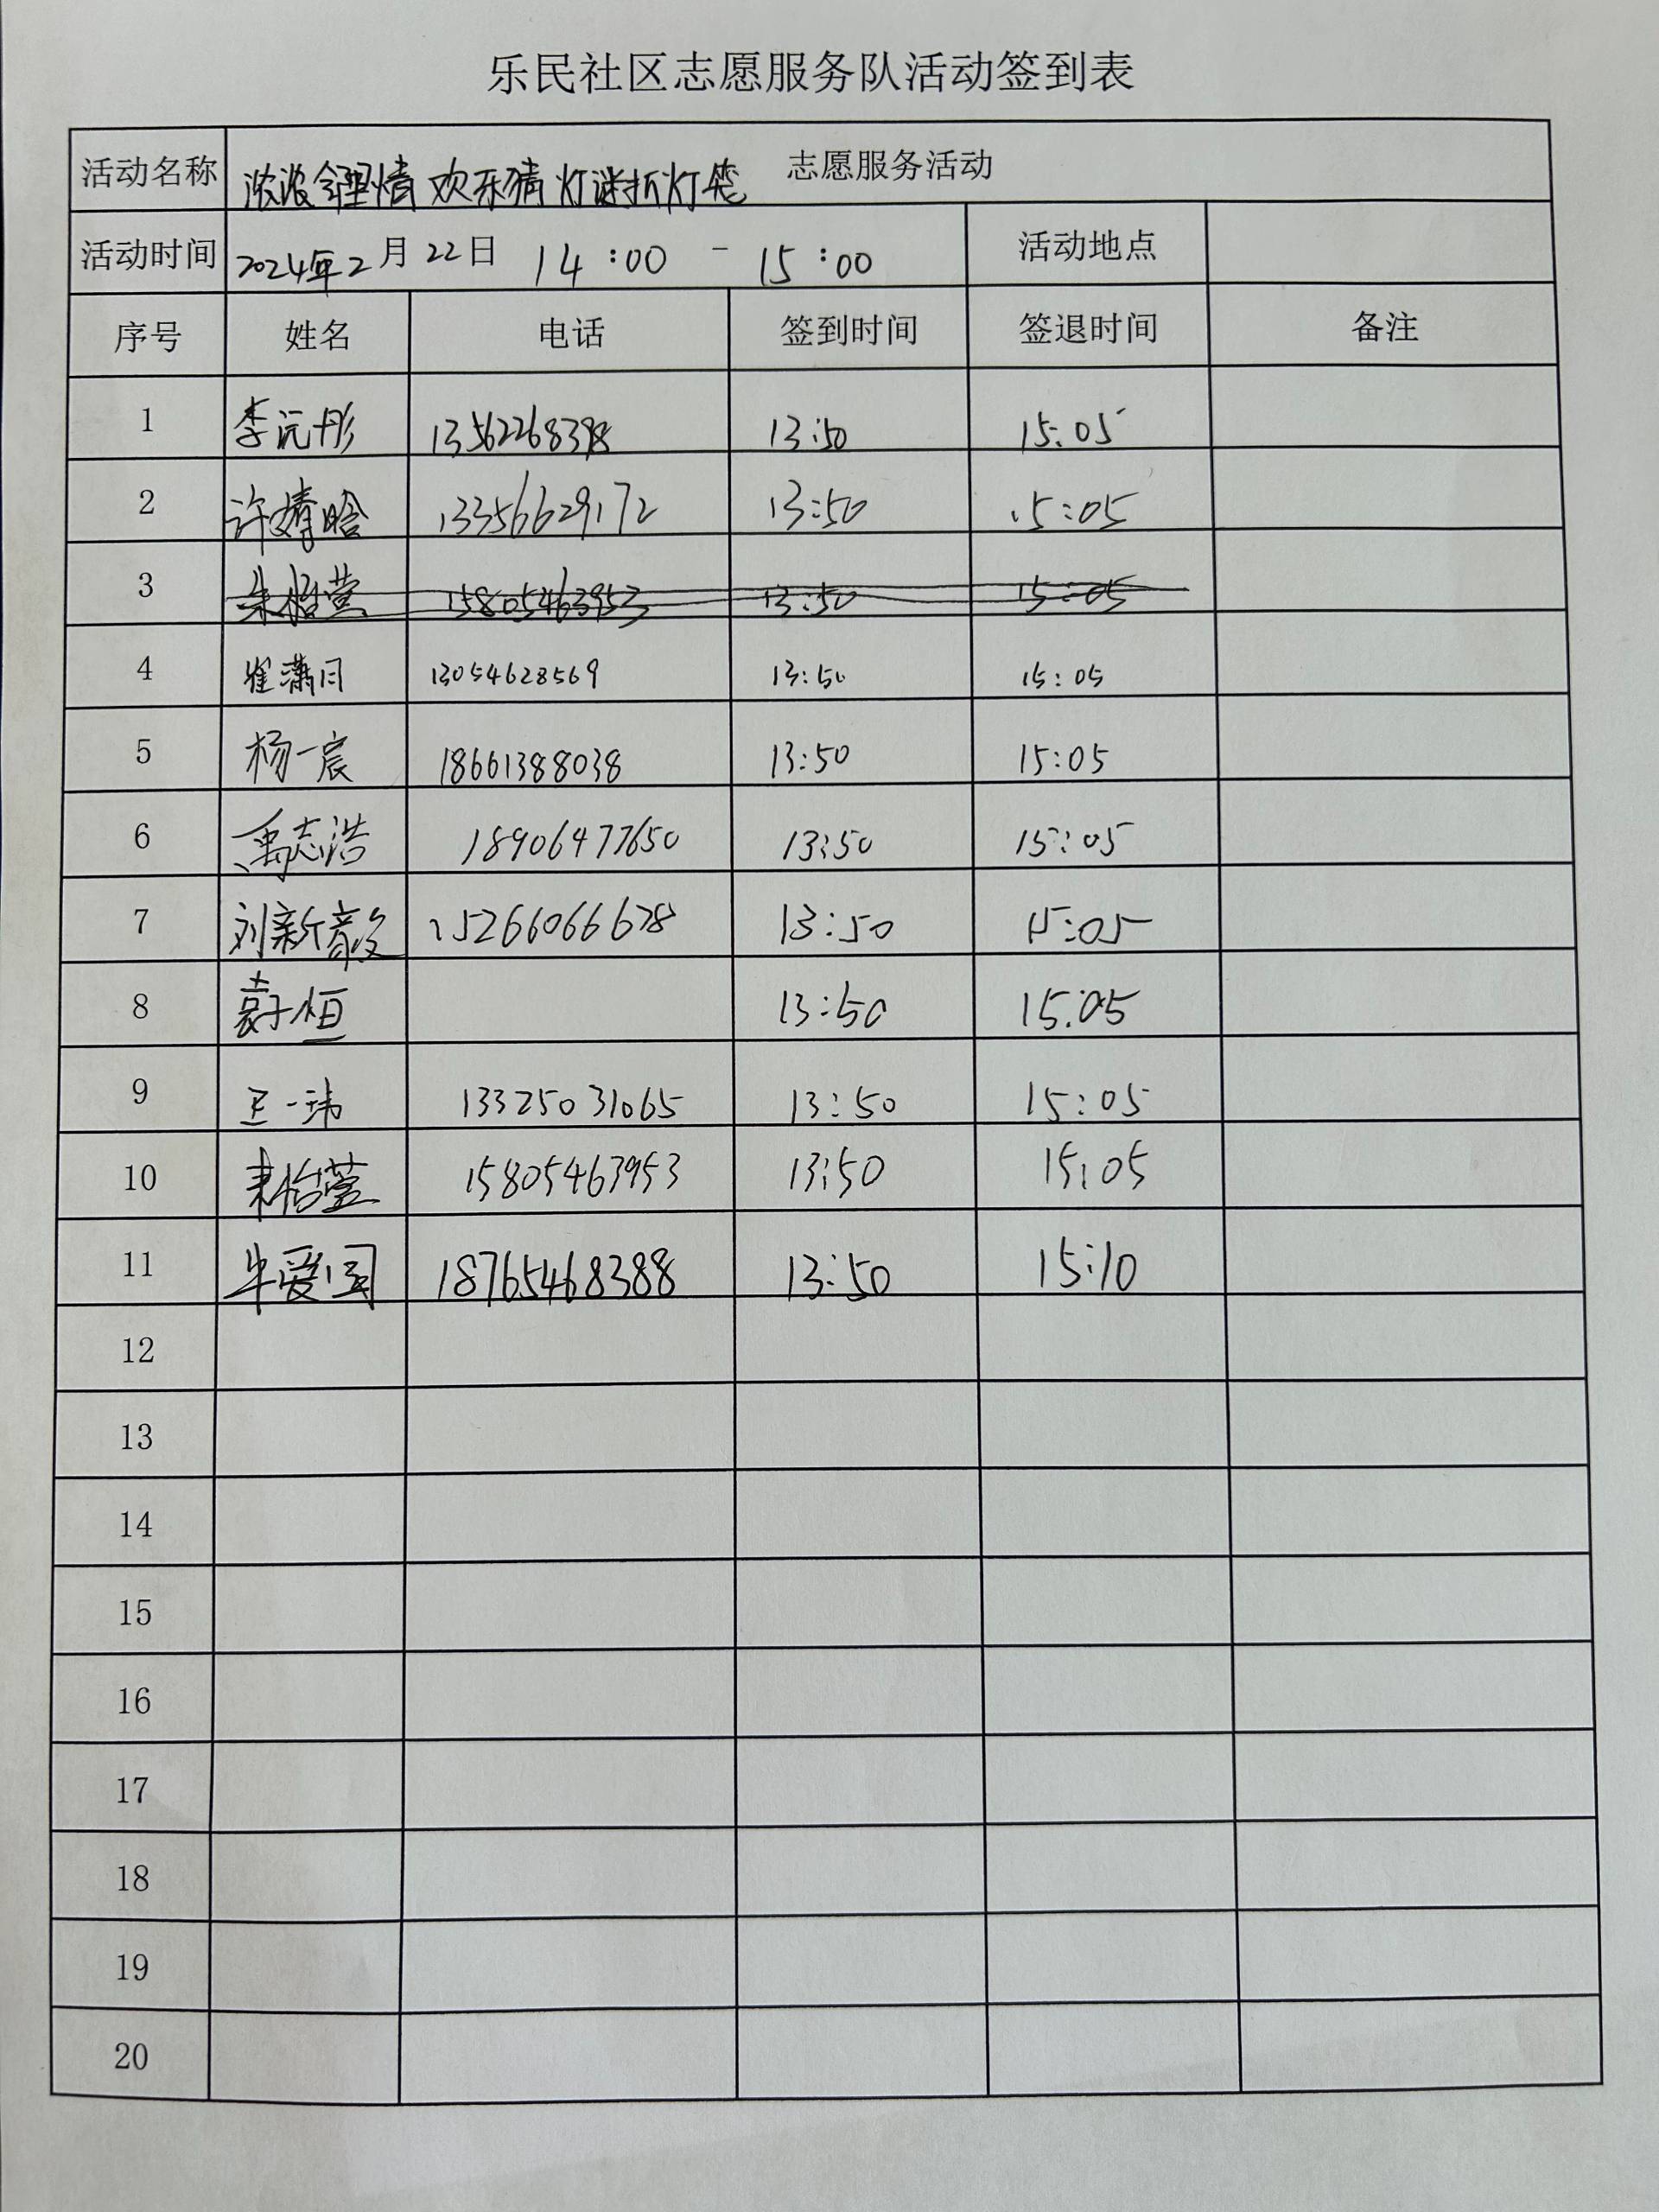 乐民社区志愿服务队活动签到表
活动名称 浓浓邻里情 欢乐猜灯谜折灯笼 志愿服务活动
活动时间 2024年2月22日 14:00 - 15:00 活动地点
序号 姓名 电话 签到时间 签退时间 备注
1 李沅彤 13562268398 13:50 15:05
2 许婧晗 13356629172 13:50 15:05
3 朱怡萱 15805463953 13:50 15:05
4 崔潇月 13054628569 13:50 15:05
5 杨一宸 18661388038 13:50 15:05
6 禹志浩 18906477650 13:50 15:05
7 刘新 15266066678 13:50 15:05
8 袁子恒 13:50 15:05
9 王一玮 13325031065 13:50 15:05
10 朱怡萱 15805463953 13:50 15:05
11 牛爱国 18765468388 13:50 15:10
12
13
14
15
16
17
18
19
20